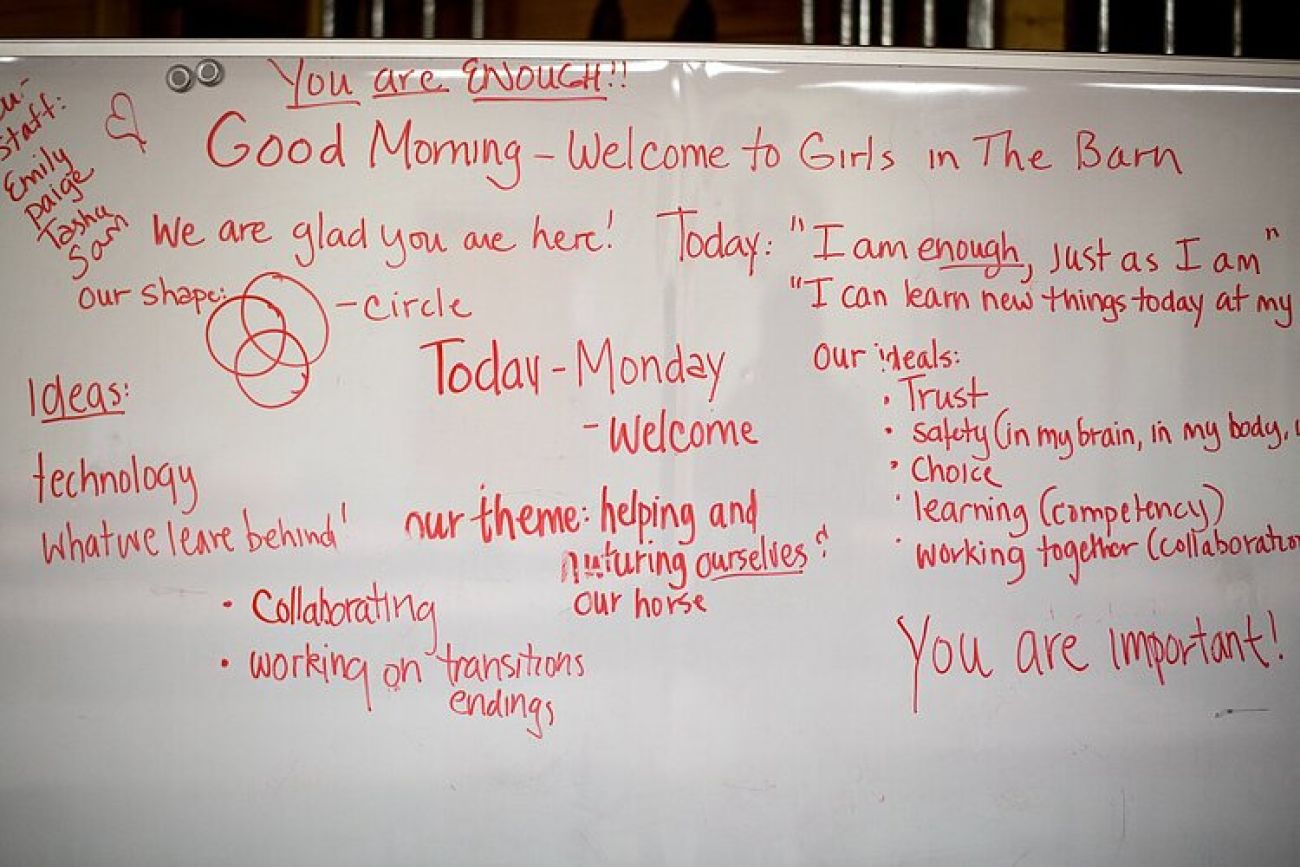 You are ENOUGH!!
Staff:
Emily
paige
Tasha
Sam
Good Morning - Welcome to Girls in The Barn
We are glad you are here!
our shape:
- circle
Today: "I am enough, just as I am"
"I can learn new things today at my
Today - Monday
- Welcome
our theme: helping and
nuturing ourselves &
our horse
Ideas:
technology
what we leave behind!
• Collaborating
• working on transitions
endings
our ideals:
• Trust
• safety (in my brain, in my body,
• Choice
• learning (competency)
• working together (collaboration
You are important!